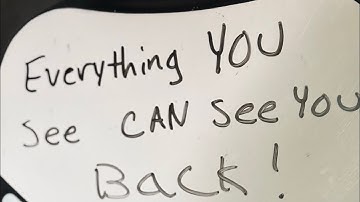 Everything YOU
See CAN See YOU
BACK!